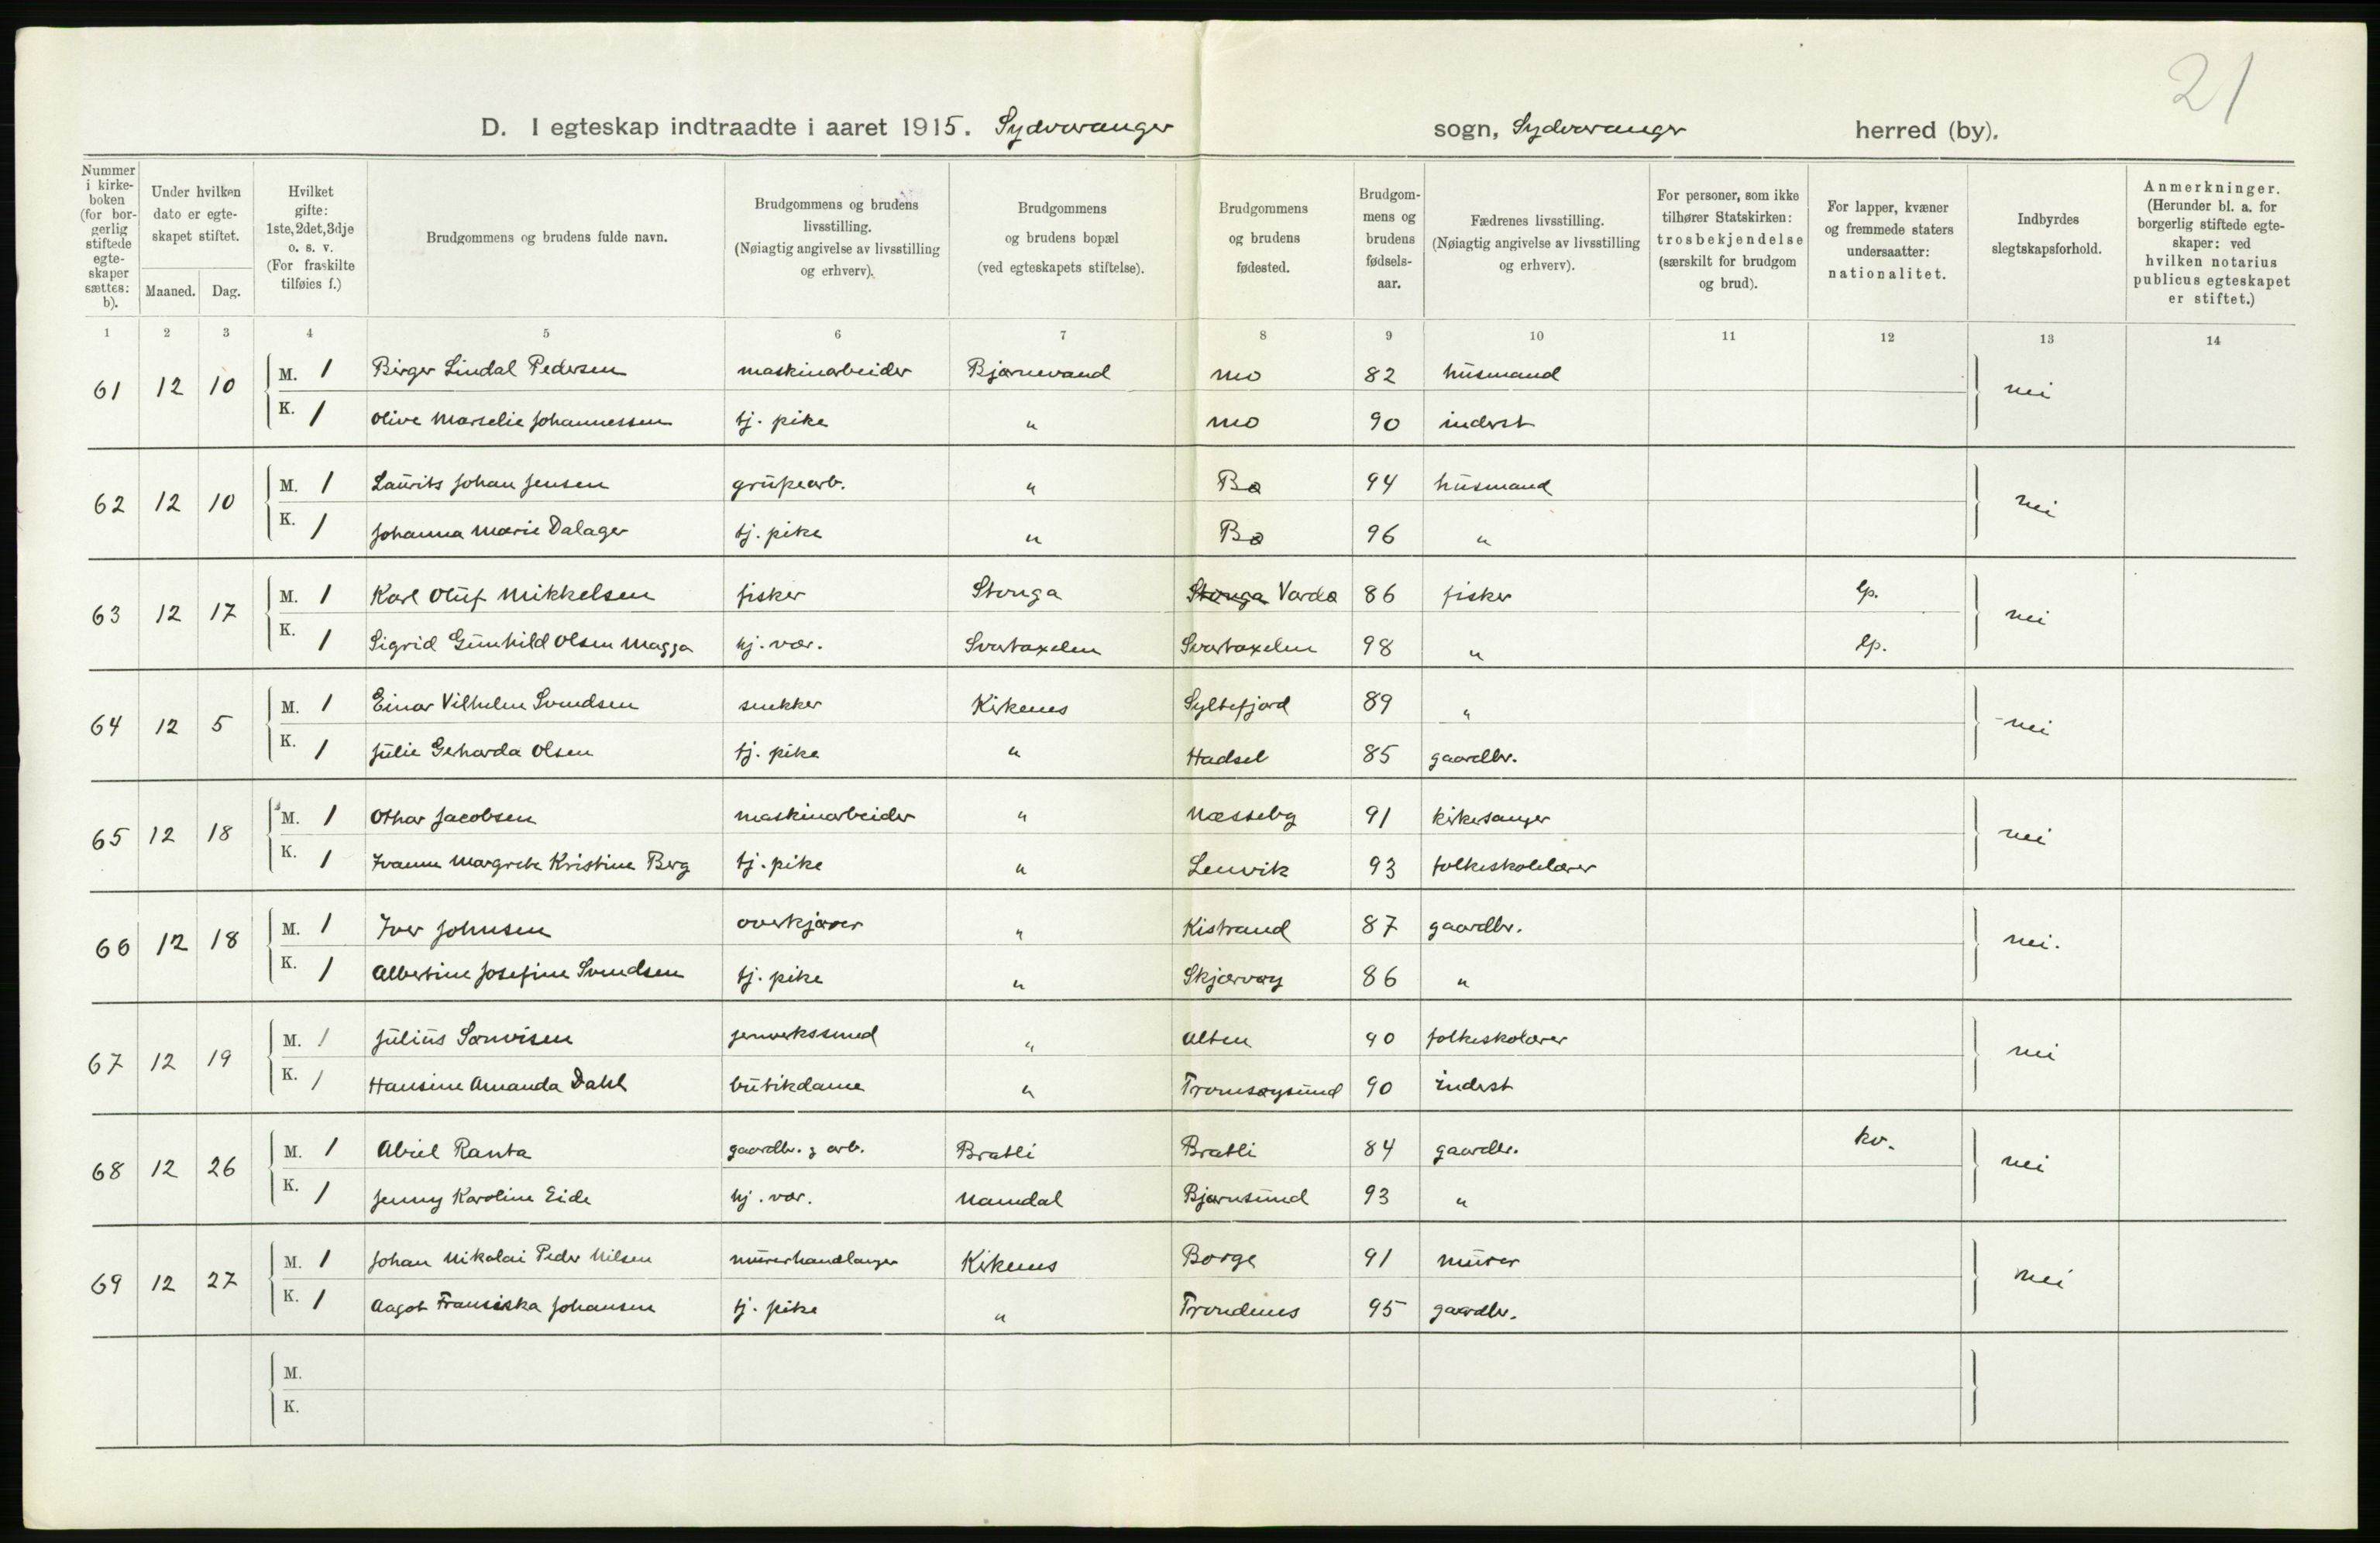 21
D. I egteskap indtraadte i aaret 1915. Sydvaranger sogn, Sydvaranger herred (by).
Nummer i kirke-boken (for bor-gerlig stiftede egte-skaper sættes: b).
Under hvilken dato er egte-skapet stiftet.
Maaned. Dag.
Hvilket gifte: 1ste, 2det, 3dje o. s. v. (For fraskilte tilføies f.)
Brudgommens og brudens fulde navn.
Brudgommens og brudens livsstilling. (Nøiagtig angivelse av livsstilling og erhverv).
Brudgommens og brudens bopæl (ved egteskapets stiftelse).
Brudgommens og brudens fødested.
Brudgom-mens og brudens fødsels-aar.
Fædrenes livsstilling. (Nøiagtig angivelse av livsstilling og erhverv).
For personer, som ikke tilhører Statskirken: trosbekjendelse (særskilt for brudgom og brud).
For lapper, kvæner og fremmede staters undersaatter: nationalitet.
Indbyrdes slegtskapsforhold.
Anmerkninger. (Herunder bl. a. for borgerlig stiftede egte-skaper: ved hvilken notarius publicus egteskapet er stiftet.)
1 2 3 4 5 6 7 8 9 10 11 12 13 14
61 12 10 M. 1 Birger Lindal Pedersen maskinarbeider Bjørnevand Mo 82 husmand nei
K. 1 Olive Marselie Johannessen tj. pike " Mo 90 inderst
62 12 10 M. 1 Laurits Johan Jensen grupearb. " Bø 94 husmand nei
K. 1 Johanna Marie Dalager tj. pike " Bø 96 "
63 12 17 M. 1 Karl Oluf Mikkelsen fisker Stonga Stonga Vardø 86 fisker lp. nei
K. 1 Sigrid Gunhild Olsen Magga hj. vær. Svartaxelen Svartaxelen 98 " lp.
64 12 5 M. 1 Einar Vilhelm Svendsen snekker Kirkenes Syltefjord 89 " nei
K. 1 Julie Gerharda Olsen tj. pike " Hadsel 85 gaardbr.
65 12 18 M. 1 Othar Jacobsen maskinarbeider " Næsseby 91 kirkesanger nei
K. 1 Ivanne Margrete Kristine Berg tj. pike " Lenvik 93 folkeskolelærer
66 12 18 M. 1 Iver Johnsen overkjører " Kistrand 87 gaardbr. nei.
K. 1 Albertine Josefine Svendsen tj. pike " Skjervøy 86 "
67 12 19 M. 1 Julius Sarvisen jernverkssmed " Alten 90 folkeskolærer nei
K. 1 Hansine Amanda Dahl butikdame " Tromsøysund 90 inderst
68 12 26 M. 1 Abiel Ranta gaardbr. & arb. Bratli Bratli 84 gaardbr. kv. nei
K. 1 Jenny Karoline Eide hj. vær. Namdal Bjørnsund 93 "
69 12 27 M. 1 Johan Nikolai Peder Nilsen murerhandlanger Kirkenes Borge 91 murer nei
K. 1 Aagot Fransiska Johansen tj. pike " Trondenes 95 gaardbr.
M.
K.